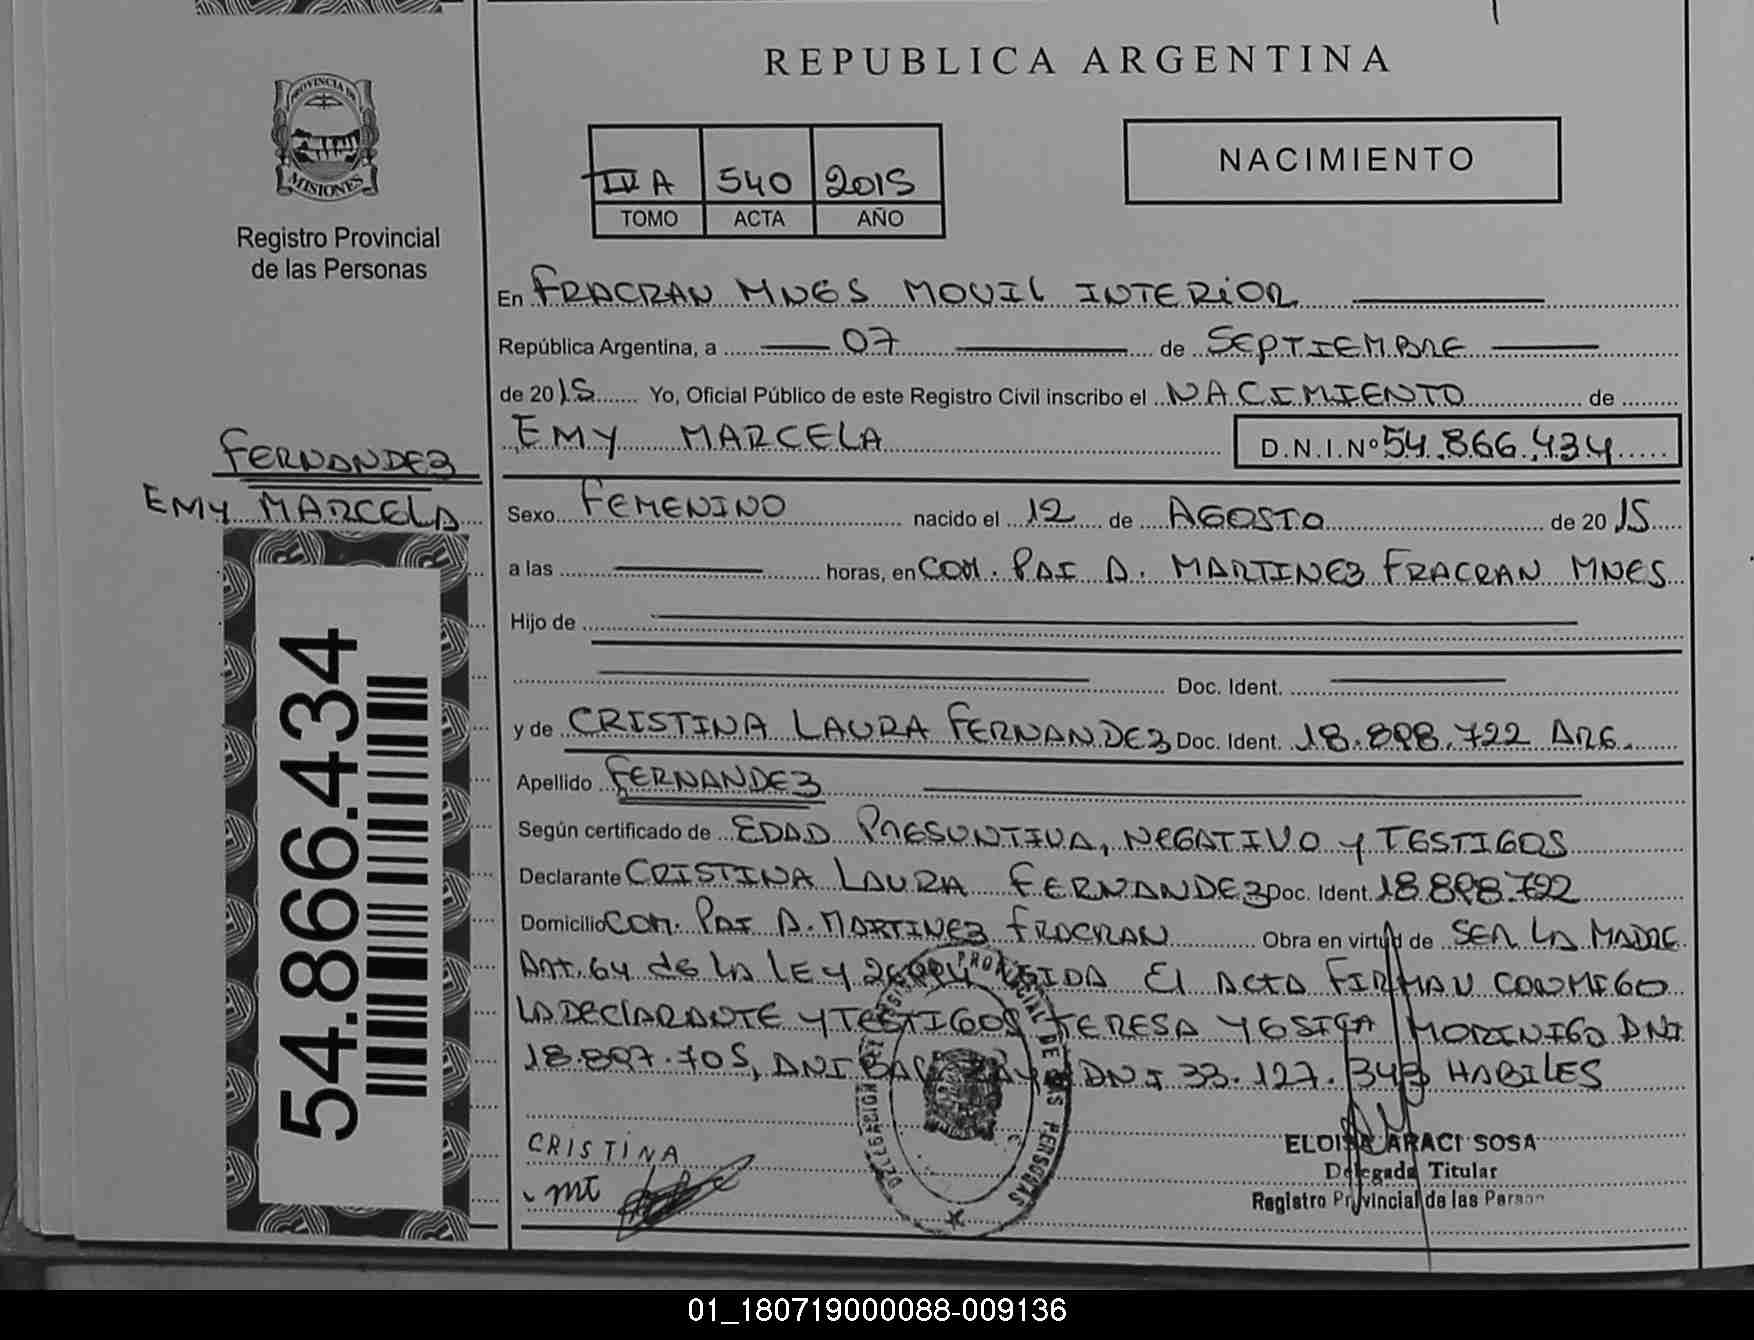 REPUBLICA ARGENTINA
PROVINCIA DE
MISIONES
Registro Provincial
de las Personas
IV A 540 2015
TOMO ACTA AÑO
NACIMIENTO
En FRACRAN MNES MOVIL INTERIOR
República Argentina, a 07 de SEPTIEMBRE
de 2015 Yo, Oficial Público de este Registro Civil inscribo el NACIMIENTO de
EMY MARCELA D.N.I.Nº 54.866.434
FERNANDEZ
EMY MARCELA
Sexo FEMENINO nacido el 12 de AGOSTO de 2015
a las horas, en COM. PAI A. MARTINEZ FRACRAN MNES
Hijo de
Doc. Ident.
y de CRISTINA LAURA FERNANDEZ Doc. Ident. 18.898.722 ARG.
Apellido FERNANDEZ
Según certificado de EDAD PRESUNTIVA, NEGATIVO Y TESTIGOS
Declarante CRISTINA LAURA FERNANDEZ Doc. Ident. 18.898.722
Domicilio COM. PAI A. MARTINEZ FRACRAN Obra en virtud de SER LA MADRE
ART. 64 de LA LEY LEIDA El ACTA FIRMAN CONMIGO
LA DECLARANTE Y TESTIGOS TERESA YESICA MORINIGO DNI
18.897.705, DNI 33.127.343 HABILES
CRISTINA
mt
54.866.434
DELEGACION PROVINCIAL DE LAS PERSONAS
ELOISA ARACI SOSA
Delegada Titular
Registro Provincial de las Person
01_180719000088-009136